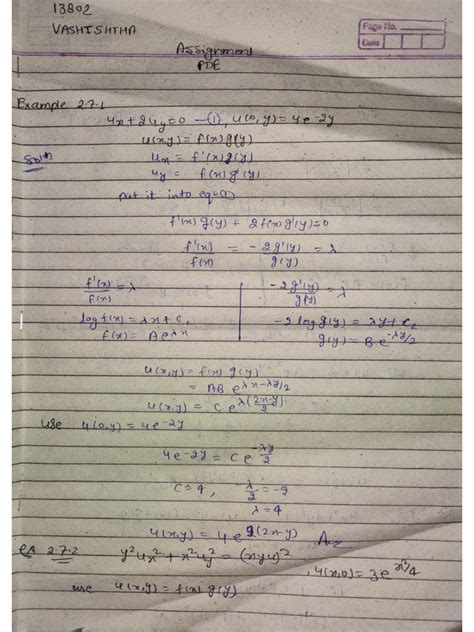 13802
VASHISHTHA
Page No.
Date
Assignment
PDE
Example 2.7.1
ux + 2uy = 0 —(1), u(0,y) = 4e^-2y
u(x,y) = f(x)g(y)
Soln ux = f'(x)g(y)
uy = f(x)g'(y)
put it into equ(1)
f'(x)g(y) + 2f(x)g'(y)=0
f'(x)/f(x) = -2g'(y)/g(y) = λ
f'(x)/f(x) = λ | -2g'(y)/g(y) = λ
log f(x) = λx + c1 | -2 log g(y) = λy + c2
f(x) = Ae^λx | g(y) = Be^-λy/2
u(x,y) = f(x) g(y)
= AB e^λx-λy/2
u(x,y) = C e^λ(2x-y)/2
use u(0,y) = 4e^-2y
4e^-2y = Ce^-λy/2
C=4, -λ/2 = -2
λ=4
u(x,y) = 4e^2(2x-y) Ans
ex 2.7.2 y²ux² + x²uy² = (xyu)²
, u(x,0) = 3e^x²/4
use u(x,y) = f(x) g(y)